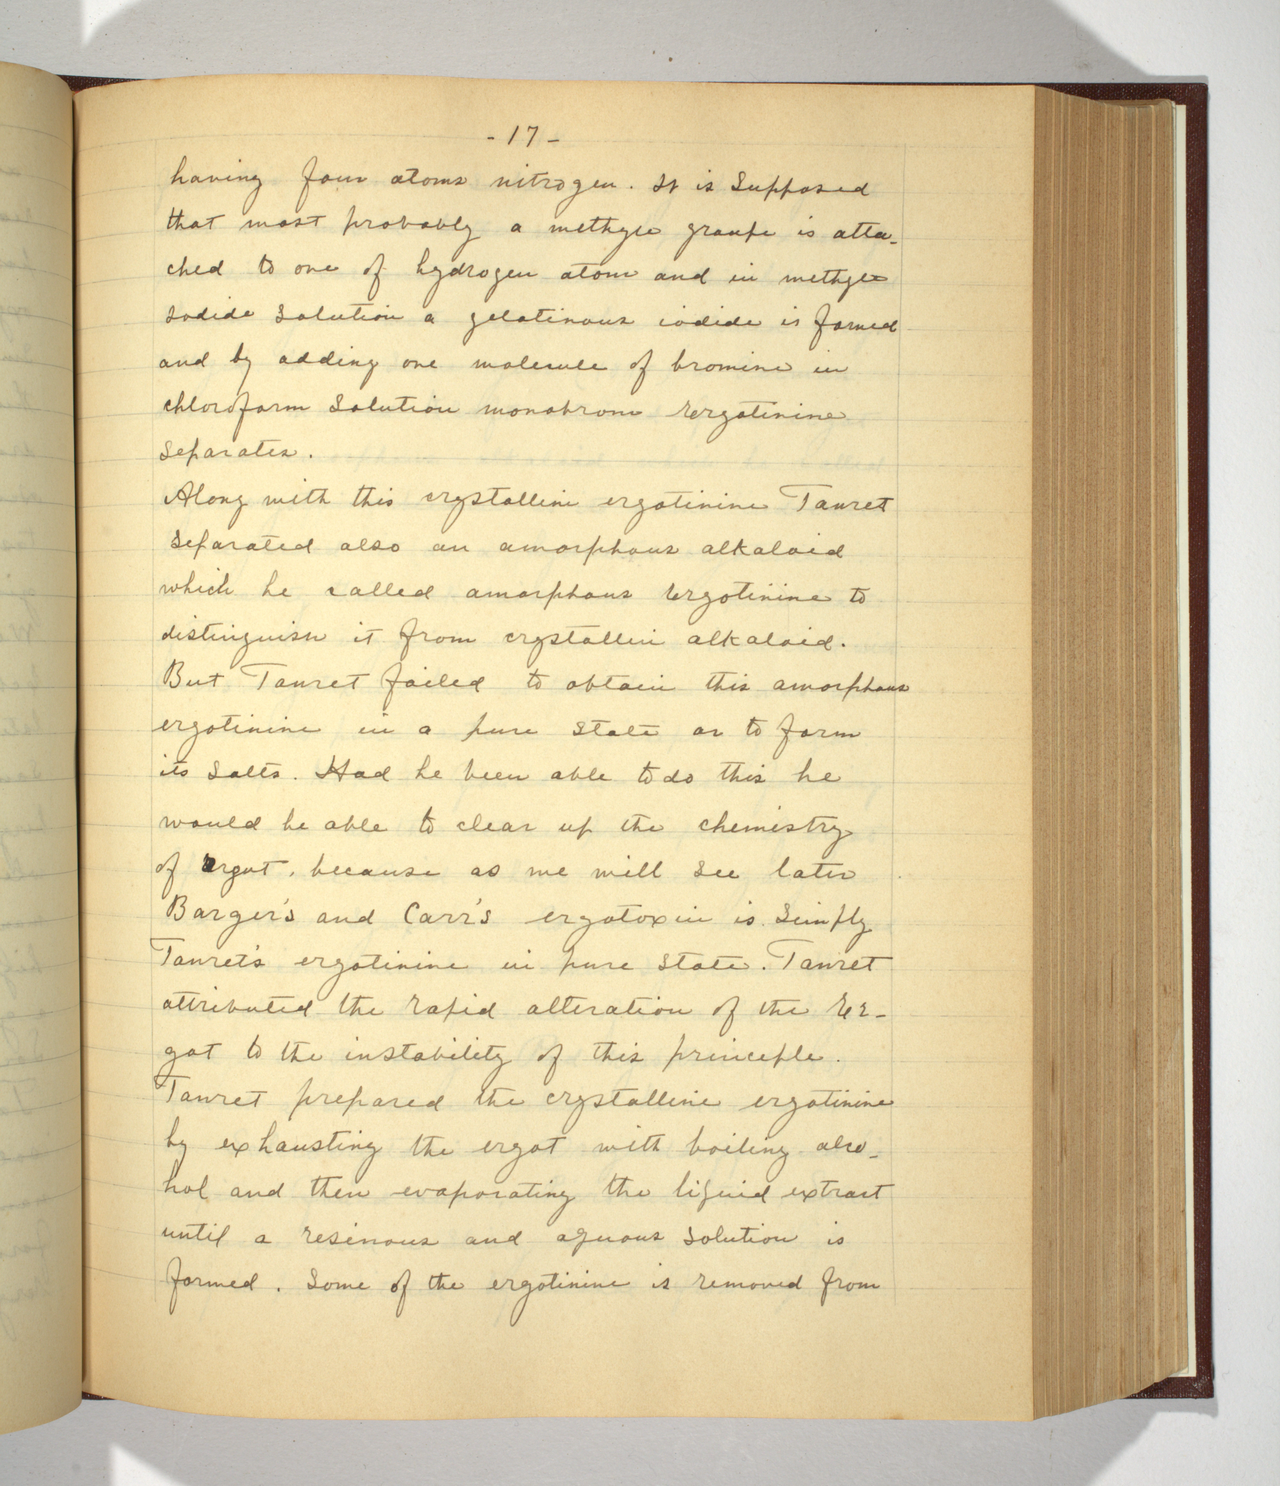 -17-
having four atoms nitrogen. It is Supposed
that most probably a methyle groupe is atta-
ched to one of hydrogen atom and in methyle
Iodide Solution a gelatinous iodide is formed
and by adding one molecule of bromine in
chloroform Solution monobrom Ergotinine
Separates.
Along with this crystallin ergotinine Tanret
Separated also an amorphous alkaloid
which he called amorphous Ergotinine to
distinguish it from crystallin alkaloid.
But Tanret failed to obtain this amorphous
ergotinine in a pure State or to form
its Salts. Had he been able to do this he
would be able to clear up the chemistry
of Ergot, because as we will See later
Barger's and Carr's ergotoxin is Simply
Tanret's ergotinine in pure State. Tanret
attributed the rapid alteration of the Er-
got to the instability of this principle.
Tanret prepared the crystalline ergotinine
by exhausting the ergot with boiling alco-
hol and then evaporating the liquid extract
until a resinous and aquous Solution is
formed. Some of the ergotinine is removed from